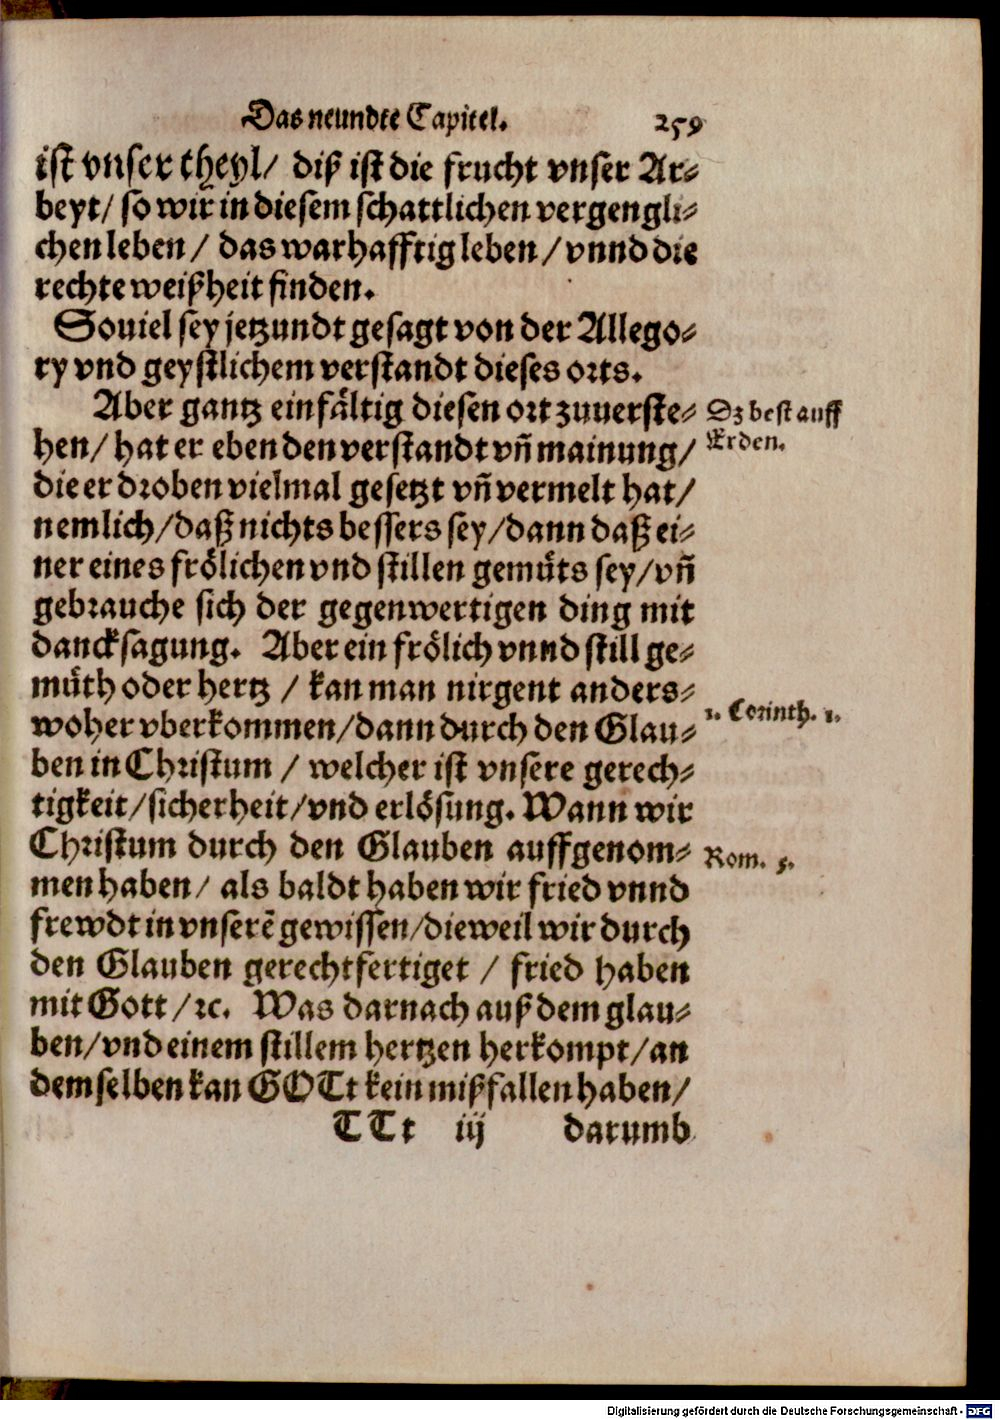 Das neundte Capitel. 259
ist vnser theyl/ diß ist die frucht vnser Ar⸗
beyt/ so wir in diesem schattlichen vergengli⸗
chen leben/ das warhafftig leben/ vnnd die
rechte weißheit finden.
Souiel sey jetzundt gesagt von der Allego⸗
ry vnd geystlichem verstandt dieses orts.
Aber gantz einfåltig diesen ort zuuerste⸗
Dz best auff
Erden.
hen/ hat er eben den verstandt vñ mainung/
die er droben vielmal gesetzt vñ vermelt hat/
nemlich/ daß nichts bessers sey/ dann daß ei⸗
ner eines frölichen vnd stillen gemüts sey/ vñ
gebrauche sich der gegenwertigen ding mit
dancksagung. Aber ein frölich vnnd still ge⸗
müth oder hertz / kan man nirgent anders⸗
woher vberkommen/ dann durch den Glau⸗
1. Corinth. 1.
ben in Christum / welcher ist vnsere gerech⸗
tigkeit/ sicherheit/ vnd erlösung. Wann wir
Christum durch den Glauben auffgenom⸗
Rom. 5.
men haben/ als baldt haben wir fried vnnd
frewdt in vnserẽ gewissen/ dieweil wir durch
den Glauben gerechtfertiget / fried haben
mit Gott / ꝛc. Was darnach auß dem glau⸗
ben/ vnd einem stillem hertzen herkompt/ an
demselben kan GOTt kein mißfallen haben/
TTt iij darumb
Digitalisierung gefördert durch die Deutsche Forschungsgemeinschaft - DFG